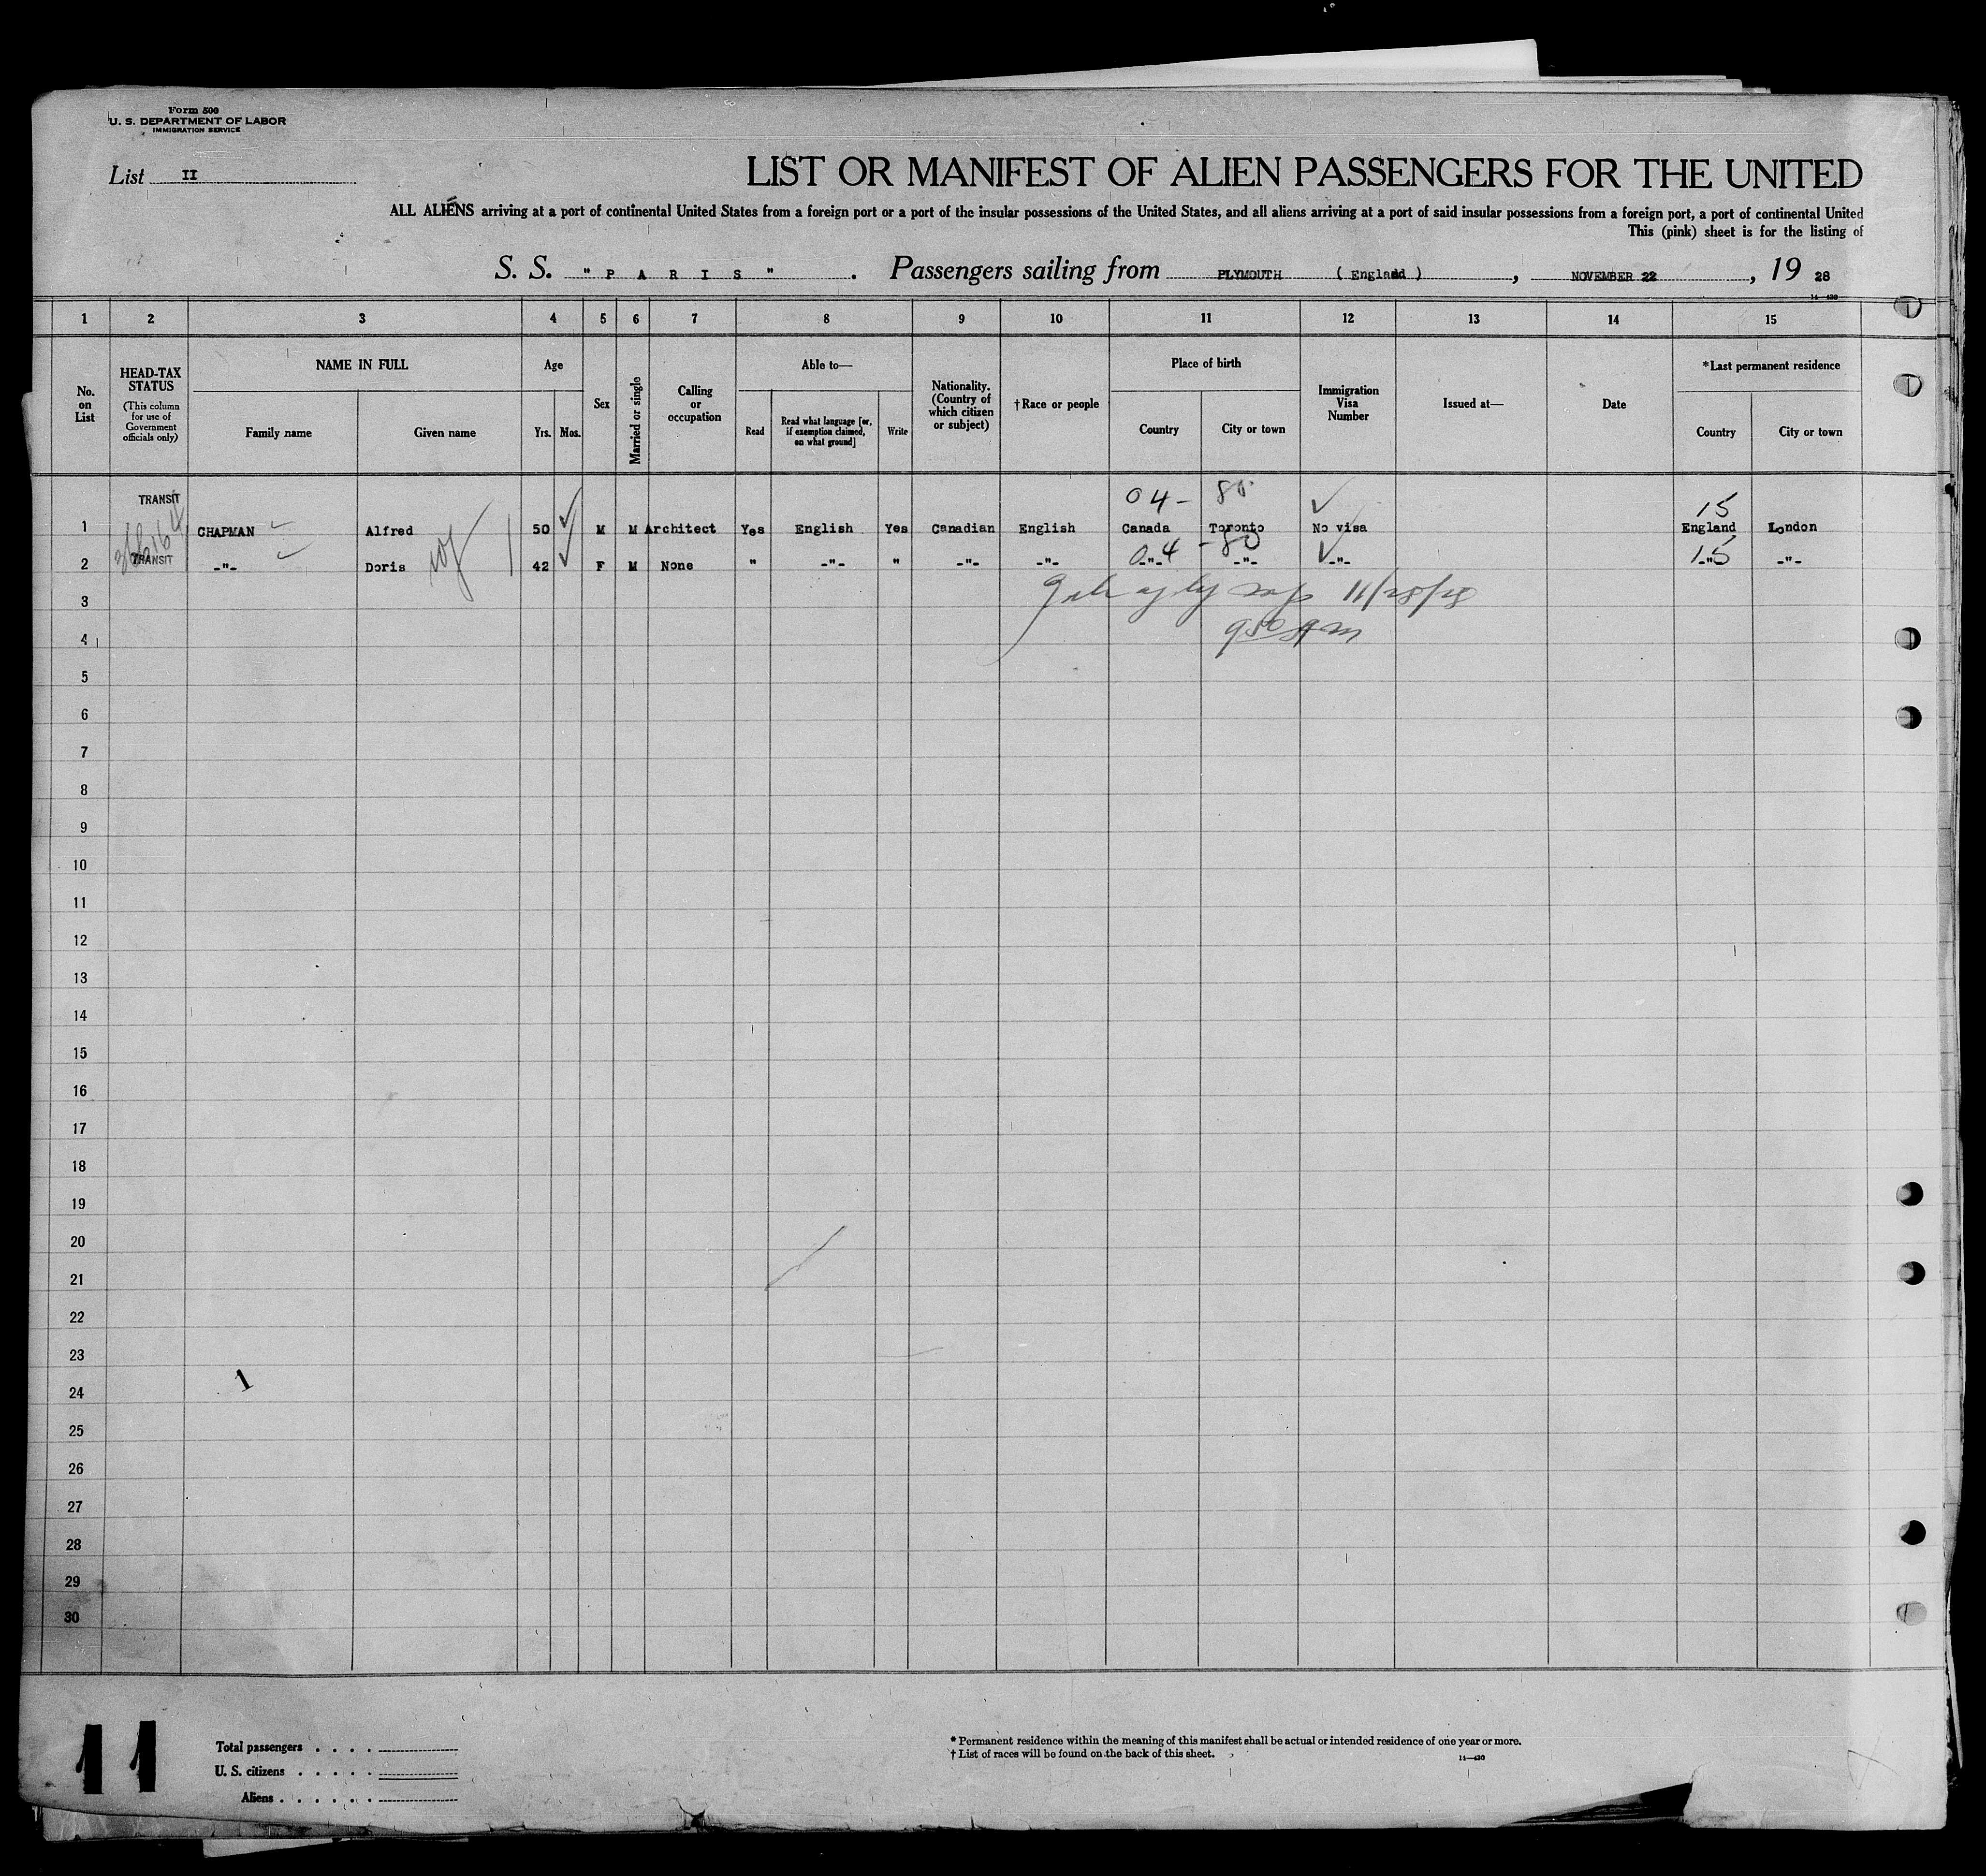 Form 500
U. S. DEPARTMENT OF LABOR
IMMIGRATION SERVICE
List II
LIST OR MANIFEST OF ALIEN PASSENGERS FOR THE UNITED
ALL ALIENS arriving at a port of continental United States from a foreign port or a port of the insular possessions of the United States, and all aliens arriving at a port of said insular possessions from a foreign port, a port of continental United
This (pink) sheet is for the listing of
S. S. "P A R I S". Passengers sailing from PLYMOUTH (England), NOVEMBER 22, 19 28
14—420
1 2 3 4 5 6 7 8 9 10 11 12 13 14 15
No. on List
HEAD-TAX STATUS
(This column for use of Government officials only)
NAME IN FULL
Family name
Given name
Age
Yrs.
Mos.
Sex
Married or single
Calling or occupation
Able to—
Read
Read what language [or, if exemption claimed, on what ground]
Write
Nationality. (Country of which citizen or subject)
†Race or people
Place of birth
Country
City or town
Immigration Visa Number
Issued at—
Date
*Last permanent residence
Country
City or town
TRANSIT 04- 80 15
1 CHAPMAN Alfred 50 M M Architect Yes English Yes Canadian English Canada Toronto No visa England London
TRANSIT 04 -80 15
2 -"- Doris 42 F M None " -"- " -"- -"- -"- -"- -"- -"- -"-
3 11/28/28
4 9 50 AM
5
6
7
8
9
10
11
12
13
14
15
16
17
18
19
20
21
22
23
24
1
25
26
27
28
29
30
11
Total passengers . . . .
U. S. citizens . . . . .
Aliens . . . . . .
* Permanent residence within the meaning of this manifest shall be actual or intended residence of one year or more.
† List of races will be found on the back of this sheet.
14—420